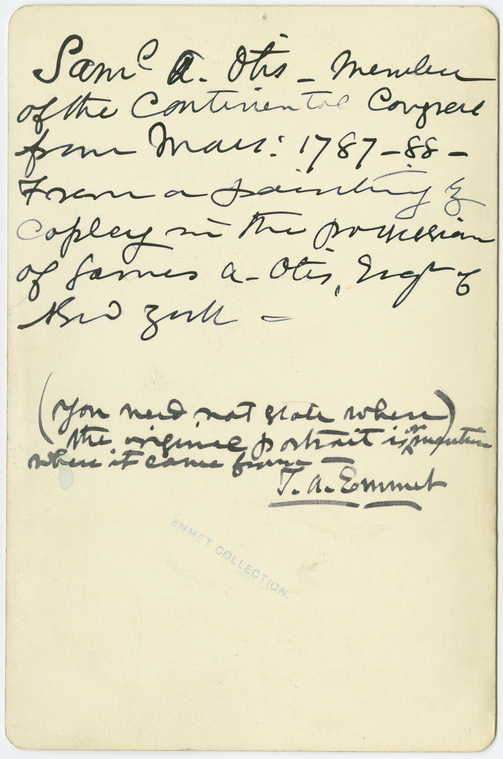 Saml A. Otis — Member
of the Continental Congress
from Mass: 1787–88 —
From a painting by
Copley in the possession
of James A. Otis, Esqr of
New York —
(You need not state where)
the original portrait is or mention
where it came from —
T. A. Emmet
EMMET COLLECTION.